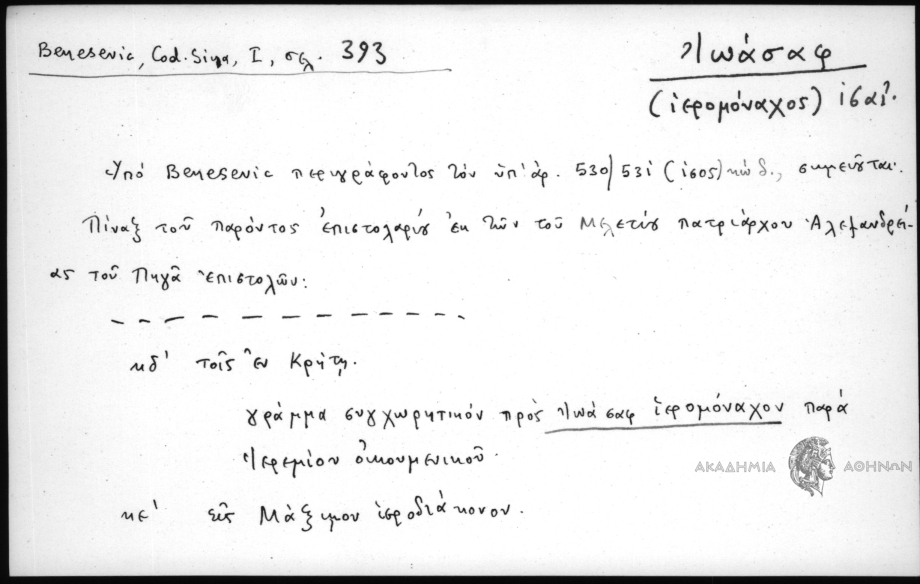 Benesevic, Cod. Sina, I, σελ. 393
Ἰωάσαφ
(ἱερομόναχος) ιϛ αἰ.
Ὑπό Benesevic περιγράφοντος τόν ὑπ' ἀρ. 530/531 (ἴσος) κώδ., σημειοῦται.
Πίναξ τοῦ παρόντος ἐπιστολαρίου ἐκ τῶν τοῦ Μελετίου πατριάρχου Ἀλεξανδρεί-
ας τοῦ Πηγᾶ ἐπιστολῶν:
κδ' τοῖς ἐν Κρήτῃ.
γράμμα συγχωρητικόν πρός Ἰωάσαφ ἱερομόναχον παρά
Ἰερεμίου οἰκουμενικοῦ.
κε' εἰς Μάξιμον ἱεροδιάκονον.
ΑΚΑΔΗΜΙΑ ΑΘΗΝΩΝ